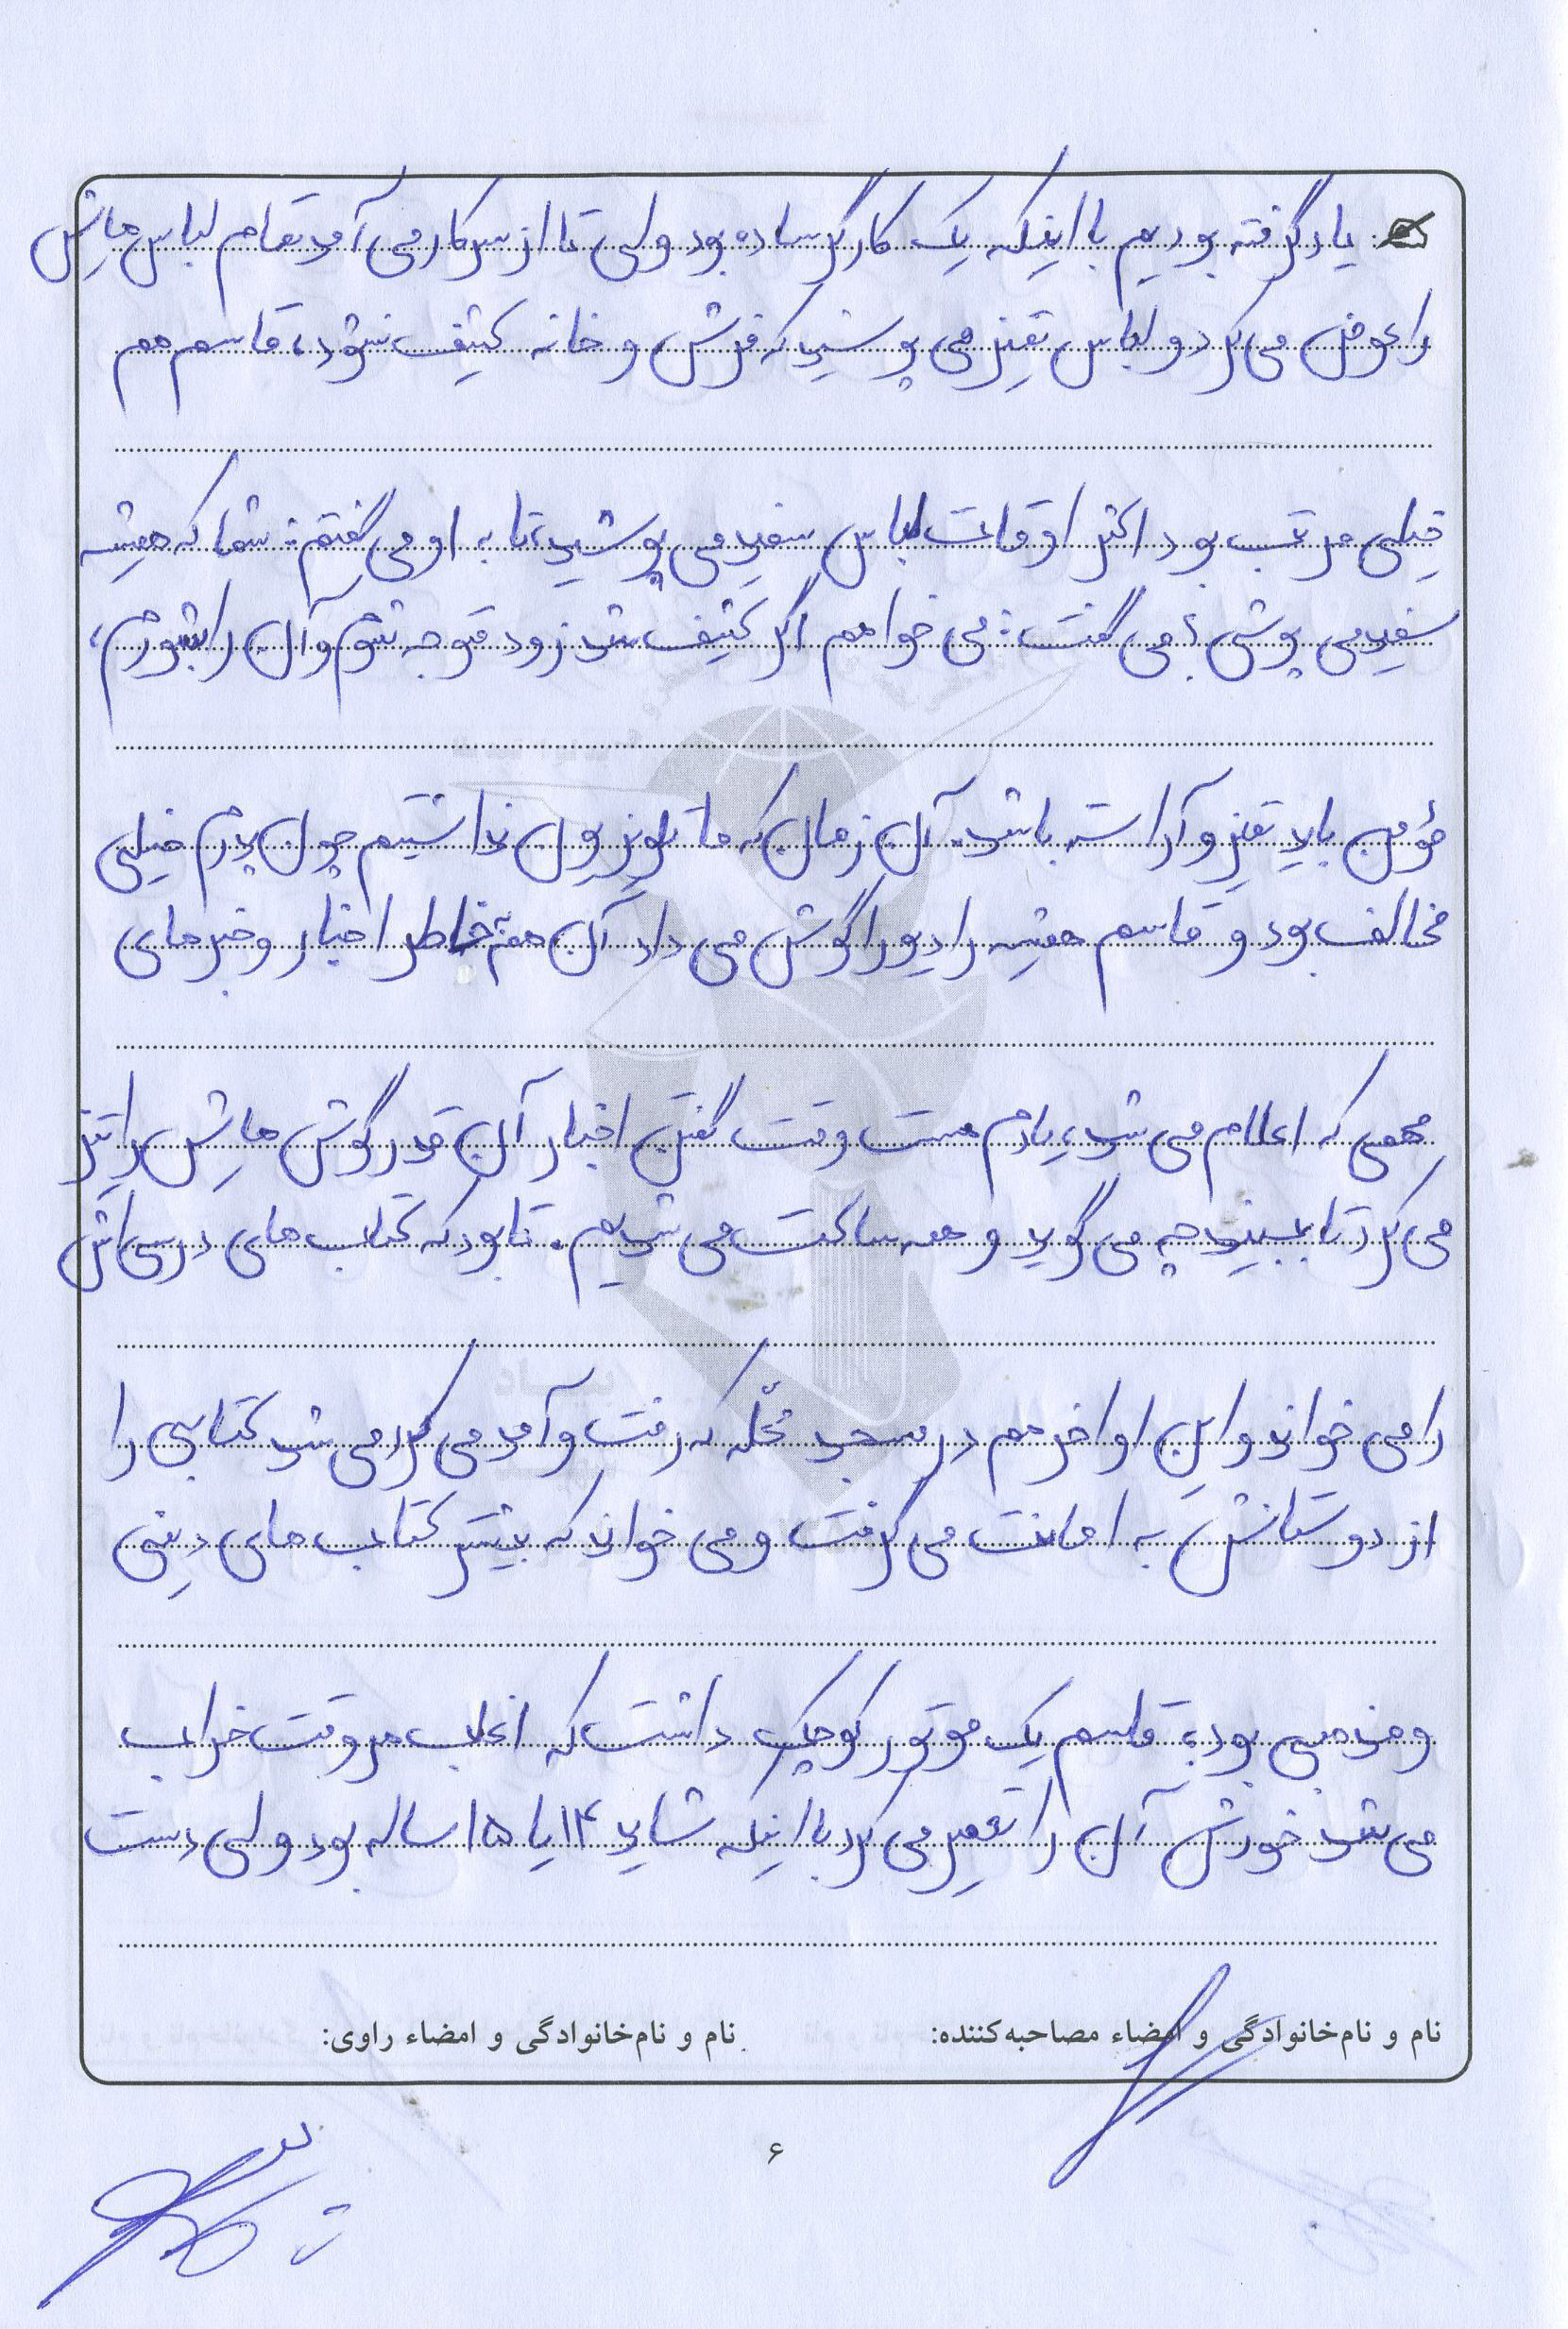 یاد گرفته بودیم با اینکه یک کارگر ساده بود ولی تا از سر کار می آمد تمام لباس هایش
را عوض می کرد و لباس تمیز می پوشید که فرش و خانه کثیف نشود، قاسم هم
خیلی مرتب بود اکثر اوقات لباس سفید می پوشید، تا به او می گفتم: شما که همیشه
سفید می پوشی؟ می گفت: می خواهم اگر کثیف شد زود متوجه شوم و آن را بشورم،
مؤمن باید تمیز و آراسته باشد. آن زمان که ما تلویزیون نداشتیم چون پدرم خیلی
مخالف بود و قاسم همیشه رادیو را گوش می داد آن هم خاطر اخبار و خبرهای
مهمی که اعلام می شد، یادم هست وقت گفتن اخبار آن قدر گوش هایش را تیز
می کرد تا ببیند چه می گوید و همه ساکت می شدیم. تا بود که کتاب های درسی اش
را می خواند و این اواخر هم در مسجد محلّه که رفت و آمد می کرد می شد کتابی را
از دوستانش به امانت می گرفت و می خواند که بیشتر کتاب های دینی
و مذهبی بود، قاسم یک موتور کوچک داشت که اغلب هر وقت خراب
می شد خودش آن را تعمیر می کرد با اینکه شاید ۱۴ یا ۱۵ ساله بود ولی دست
نام و نام‌خانوادگی و امضاء مصاحبه‌کننده:
نام و نام‌خانوادگی و امضاء راوی:
۶